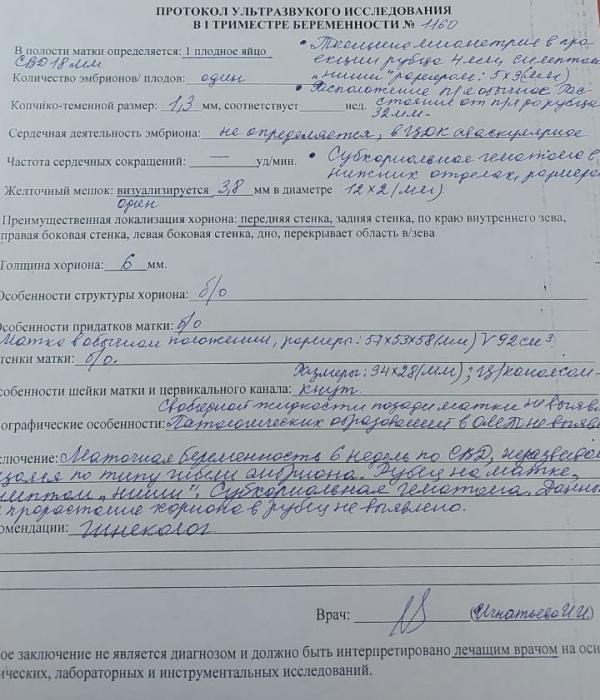 ПРОТОКОЛ УЛЬТРАЗВУКОГО ИССЛЕДОВАНИЯ
В I ТРИМЕСТРЕ БЕРЕМЕННОСТИ № 1160
В полости матки определяется: 1 плодное яйцо
СВД 18 мм
• Толщина миометрия в про-
екции рубца 4 мм, симптом
"ниши" размером: 5×3 (мм)
Количество эмбрионов/ плодов: один
• Расположение п/я обычное. Рас-
стояние от п/я до рубца
32 мм.
Копчико-теменной размер: 1,3 мм, соответствует нед.
Сердечная деятельность эмбриона: не определяется, в ЦДК аваскулярное
Частота сердечных сокращений: — уд/мин.
• Субхориальная гематома в
нижних отделах, размером
12×2 (мм)
Желточный мешок: визуализируется 3,8 мм в диаметре
один
Преимущественная локализация хориона: передняя стенка, задняя стенка, по краю внутреннего зева,
правая боковая стенка, левая боковая стенка, дно, перекрывает область в/зева
Толщина хориона: 6 мм.
Особенности структуры хориона: б/о
Особенности придатков матки: б/о
Матка в обычном положении, размеры: 57×53×58 (мм) V 92 см³
тенки матки: б/о.
Размеры: 34×28 (мм); Ц/канал сом-
собенности шейки матки и цервикального канала: кнут.
Свободной жидкости позади матки не выявле
ографические особенности: Патологических образований в ОМТ не выявле
ключение: Маточная беременность 6 недель по СВД, неразвива
щаяся по типу гибели эмбриона. Рубец на матке,
имптом "ниши". Субхориальная гематома. Данных
прорастание хориона в рубец не выявлено.
омендации: гинеколог
Врач: (Игнатьева И.И
ое заключение не является диагнозом и должно быть интерпретировано лечащим врачом на осн
ических, лабораторных и инструментальных исследований.